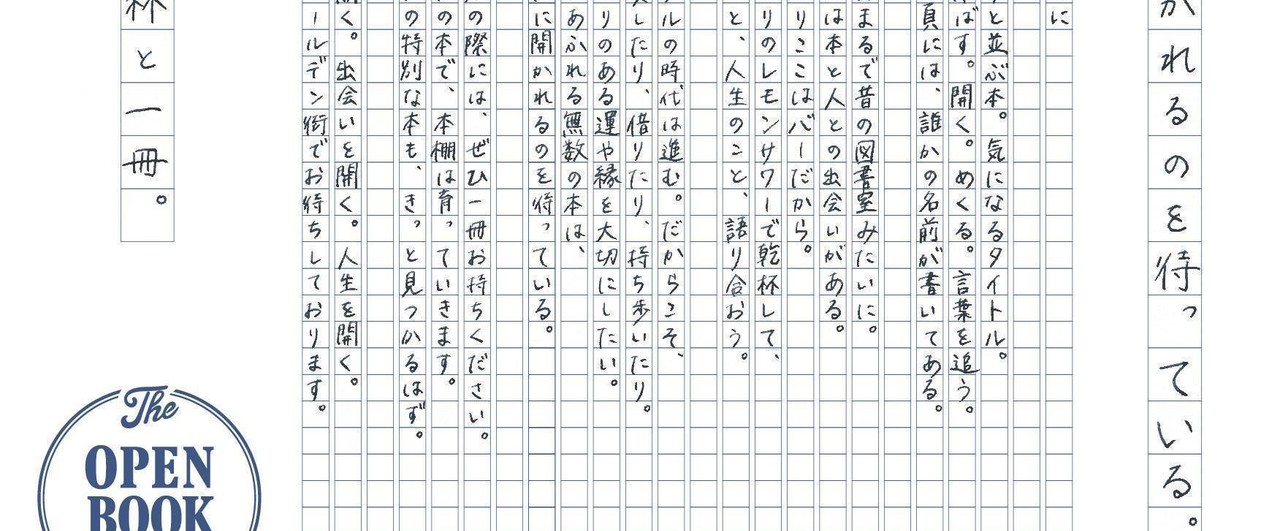 かれるのを待っている。
に
と並ぶ本。気になるタイトル。
ばす。開く。めくる。言葉を追う。
頁には、誰かの名前が書いてある。
まるで昔の図書室みたいに。
は本と人との出会いがある。
りここはバーだから。
りのレモンサワーで乾杯して、
と、人生のこと、語り合おう。
ルの時代は進む。だからこそ、
したり、借りたり、持ち歩いたり。
りのある運や縁を大切にしたい。
あふれる無数の本は、
に開かれるのを待っている。
の際には、ぜひ一冊お持ちください。
の本で、本棚は育っていきます。
の特別な本も、きっと見つかるはず。
開く。出会いを開く。人生を開く。
ールデン街でお待ちしております。
杯と一冊。
The
OPEN
BOOK